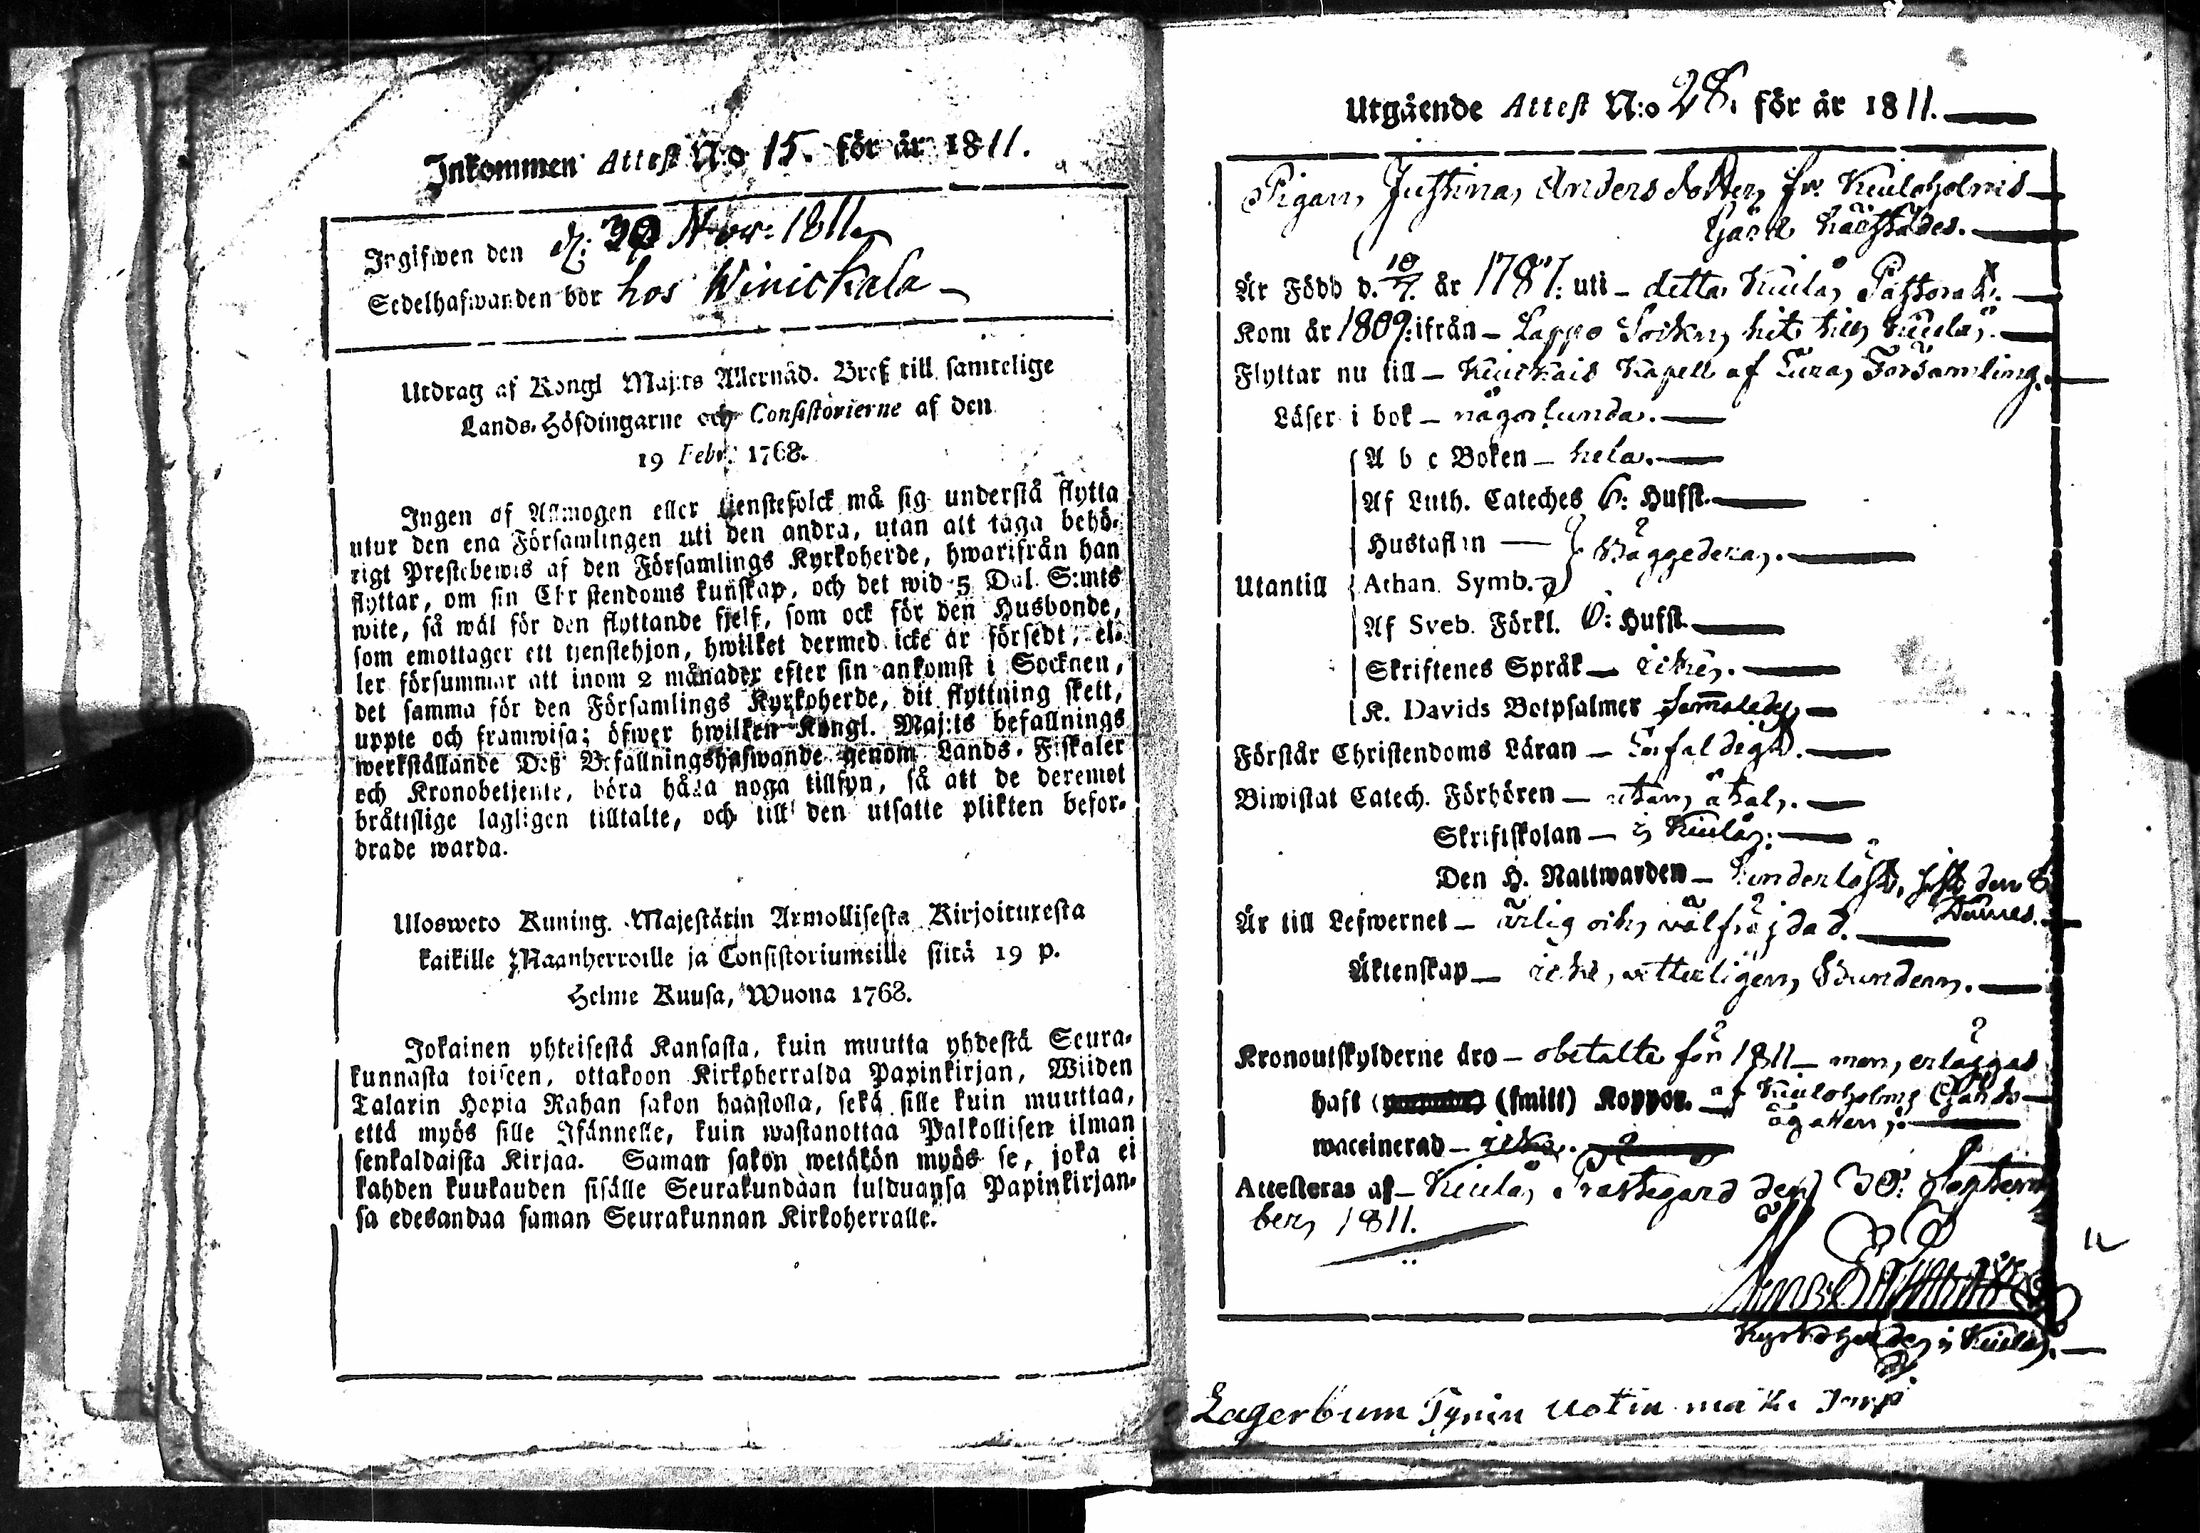 Inkommen Attest N:o 15. för år 1811.
Ingifwen den d. 30 Nov: 1811.
Sedelhafwanden bor hos Winickala
Utdrag af Kongl Maj:ts Allernåd. Bref till samtelige
Lands-Höfdingarne och Consistorierne af den
19 Febr. 1768.
Ingen af Allmogen eller tjenstefolck må sig understå flytta
utur den ena Församlingen uti den andra, utan att taga behö-
rigt Prestebewis af den Församlings Kyrkoherde, hwarifrån han
flyttar, om sin Christendoms kunskap, och det wid 5 Dal. S:mts
wite, så wäl för den flyttande sjelf, som ock för den Husbonde,
som emottager ett tjenstehjon, hwilket dermed icke är försedt, el-
ler försummar att inom 2 månader efter sin ankomst i Socknen,
det samma för den Församlings Kyrkoherde, dit flyttning skett,
uppte och framwisa; öfwer hwilken Kongl. Maj:ts befallnings
werkställande Deß Befallningshafwande genom Lands-Fiskaler
och Kronobetjente, böra hålla noga tillsyn, så att de deremot
bråttslige lagligen tilltalte, och till den utsatte plikten befor-
drade warda.
Ulosweto Kuning. Majestätin Armollisesta Kirjoituxesta
kaikille Maanherroille ja Consistoriumeille siitä 19 p.
Helme Kuusa, Wuona 1768.
Jokainen yhteisestä Kansasta, kuin muutta yhdestä Seura-
kunnasta toiseen, ottakoon Kirkoherralda Papinkirjan, Wiiden
Talarin Hopia Rahan sakon haastolla, sekä sille kuin muuttaa,
että myös sille Isännelle, kuin wastanottaa Palkollisen ilman
senkaldaista Kirjaa. Saman sakon wetäkön myös se, joka ei
kahden kuukauden sisälle Seurakundaan tulduansa Papinkirjan-
sa edesandaa saman Seurakunnan Kirkoherralle.
Utgående Attest N:o 28. för år 1811.
Pigan, Justina, Anders dotter, fr. Kiuloholms
Gård
Är Född d. 10/7. år 1787. uti detta Kiulå, Pastorat.
Kom år 1809. ifrån Lappo Sockn, hit till Kiulå.
Flyttar nu till Kiukais Kapell af Eura, Församling.
Läser i bok någorlunda.
A b c Boken hela.
Af Luth. Cateches 6: Hufst.
Hustaflan
Bäggedera.
Utantill Athan. Symb.
Af Sveb. Förkl. 6: Hufst.
Skriftenes Språk icke.
K. Davids Botpsalmer Sammaledes
Förstår Christendoms Läran Enfaldigt.
Biwistat Catech. Förhören utan, åtal.
Skriftskolan i Kiulå.
Den H. Nattwarden sist, den 8
Är till Lefwernet ärlig och, välfräjdad.
Äktenskap icke, vetterligen, bunden.
Kronoutskylderne äro obetalte för 1811 men, erläggas
haft (smitt) Koppor. af Kiuloholms Gårds
ägaren.
waccinerad icke.
Attesteras af Kiulå, Prästegård den 30: Septem
ber, 1811.
Kyrkoherde, i Kiulå.
Lagerbum